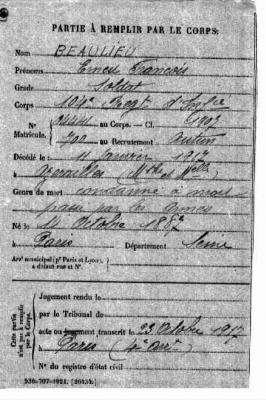 PARTIE À REMPLIR PAR LE CORPS.
Nom BEAULIEU
Prénoms Ernest François
Grade Soldat
Corps 104e Regt d'Inf
N° au Corps. — Cl. 1907
Matricule. 700 au Recrutement Autun
Décédé le 11 Janvier 1917
à
Genre de mort condamné à mort
passé par les armes
Né le 11 Octobre 1887
à Paris Département Seine
Arrt municipal (pr Paris et Lyon),
à défaut rue et N°.
Cette partie n'est pas à remplir par le Corps.
Jugement rendu le
par le Tribunal de
acte ou jugement transcrit le 23 Octobre 1917
à Paris (4e arrt)
N° du registre d'état civil
536-707-1921. [26434.]